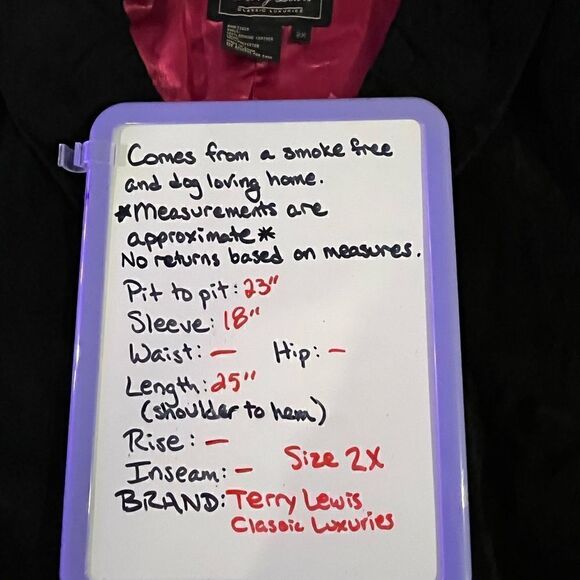 CLASSIC LUXURIES
2X
Comes from a smoke free
and dog loving home.
*Measurements are
approximate*
No returns based on measures.
Pit to pit: 23"
Sleeve: 18"
Waist: — Hip: -
Length: 25"
(shoulder to hem)
Rise: —
Inseam: - Size 2X
BRAND: Terry Lewis
Classic Luxuries